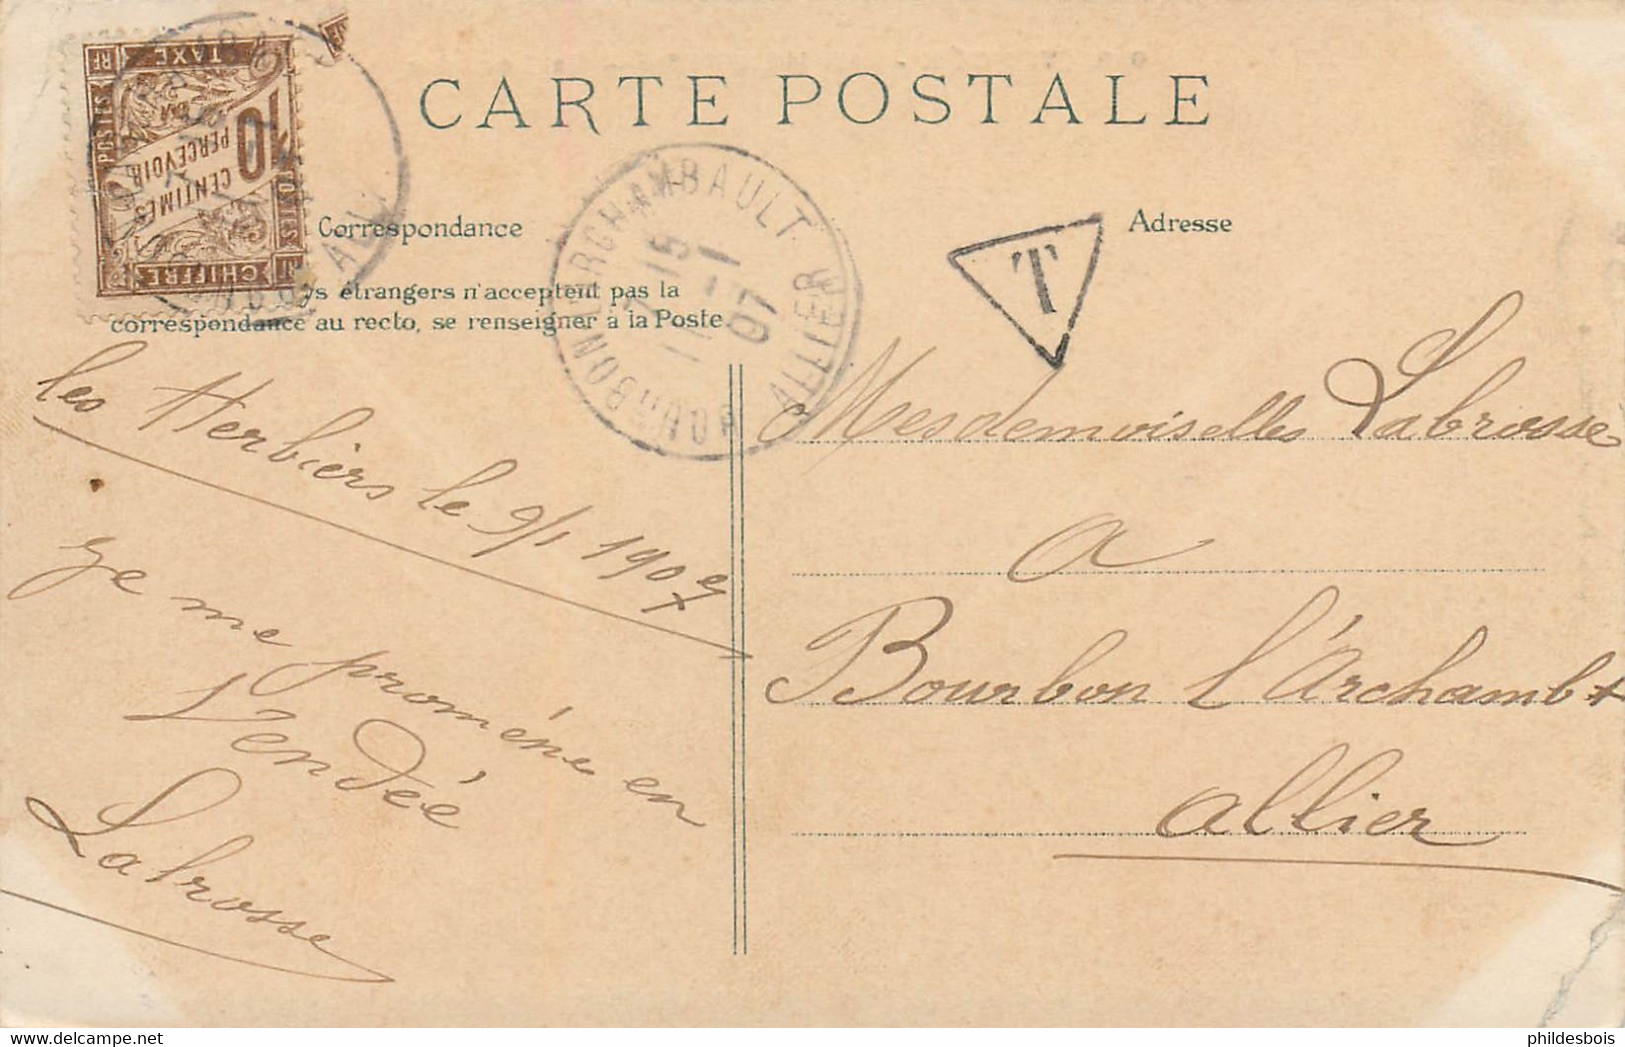 CARTE POSTALE
POSTES
RF
TAXE
10
CENTIMES
PERCEVOIR
CHIFFRE
Correspondance
Adresse
T
BOURBON L'ARCHAMBAULT
7-15
11-1
07
ALLIER
ys étrangers n'acceptent pas la
correspondance au recto, se renseigner à la Poste.
les Herbiers le 9/1 1907
Je me promène en
Vendée
Labrosse
Mesdemoiselles Labrosse
a
Bourbon l'Archambt
allier
www.delcampe.net
phildesbois